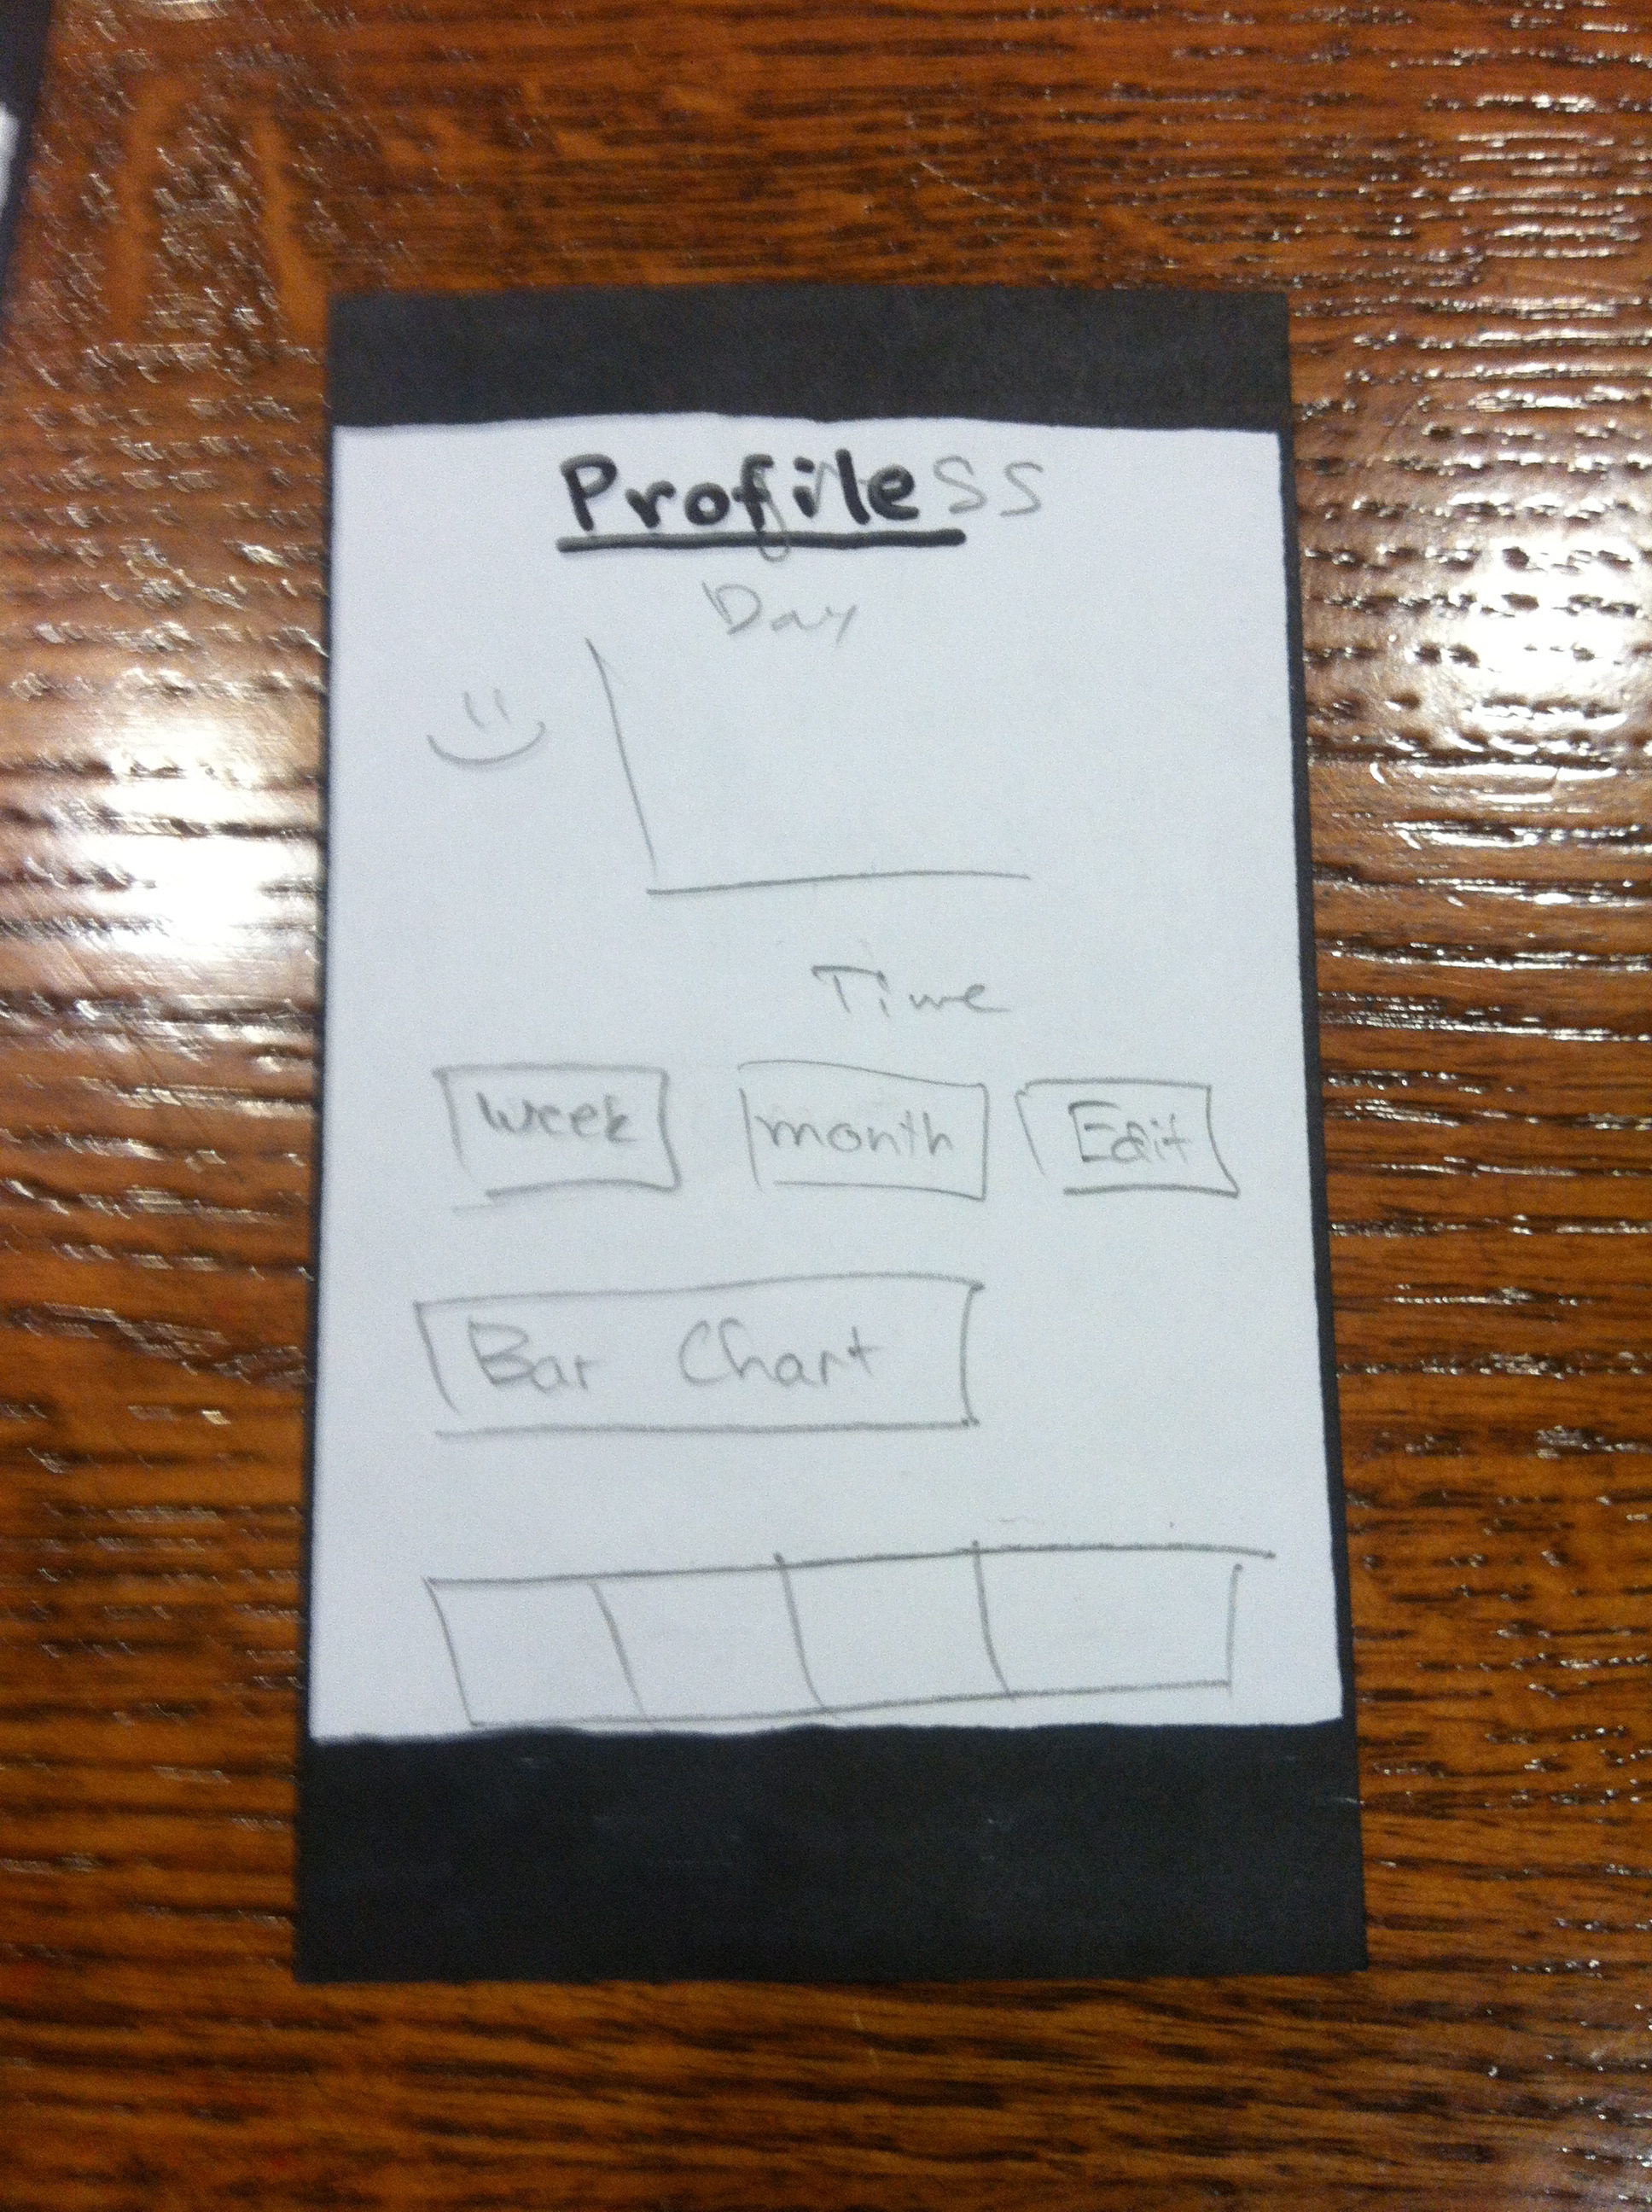 Profiless
Day
Time
week month Edit
Bar Chart